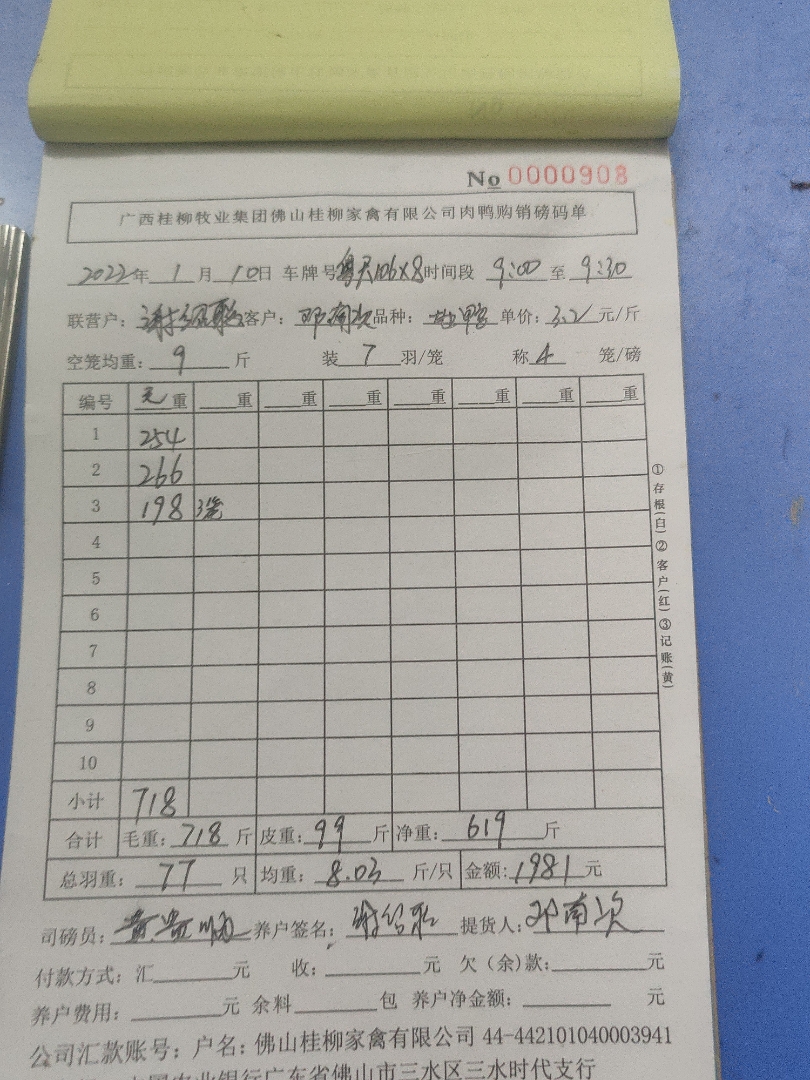 No 0000908
广西桂柳牧业集团佛山桂柳家禽有限公司肉鸭购销磅码单
2022年 1月 10日 车牌号 时间段 9:00 至 9:30
联营户: 客户: 邓南次 品种: 鸭 单价: 3.2 元/斤
空笼均重: 9 斤 装 7 羽/笼 称 4 笼/磅
编号 毛重 重 重 重 重 重 重 重
1 254
2 266
3 198 3笼
4
5
6
7
8
9
10
小计 718
合计 毛重: 718 斤 皮重: 99 斤 净重: 619 斤
总羽重: 77 只 均重: 8.03 斤/只 金额: 1981 元
司磅员: 养户签名: 提货人: 邓南次
付款方式: 汇 元 收: 元 欠(余)款: 元
养户费用: 元 余料 包 养户净金额: 元
公司汇款账号: 户名: 佛山桂柳家禽有限公司 44-442101040003941
中国农业银行广东省佛山市三水区三水时代支行
①存根(白)②客户(红)③记账(黄)